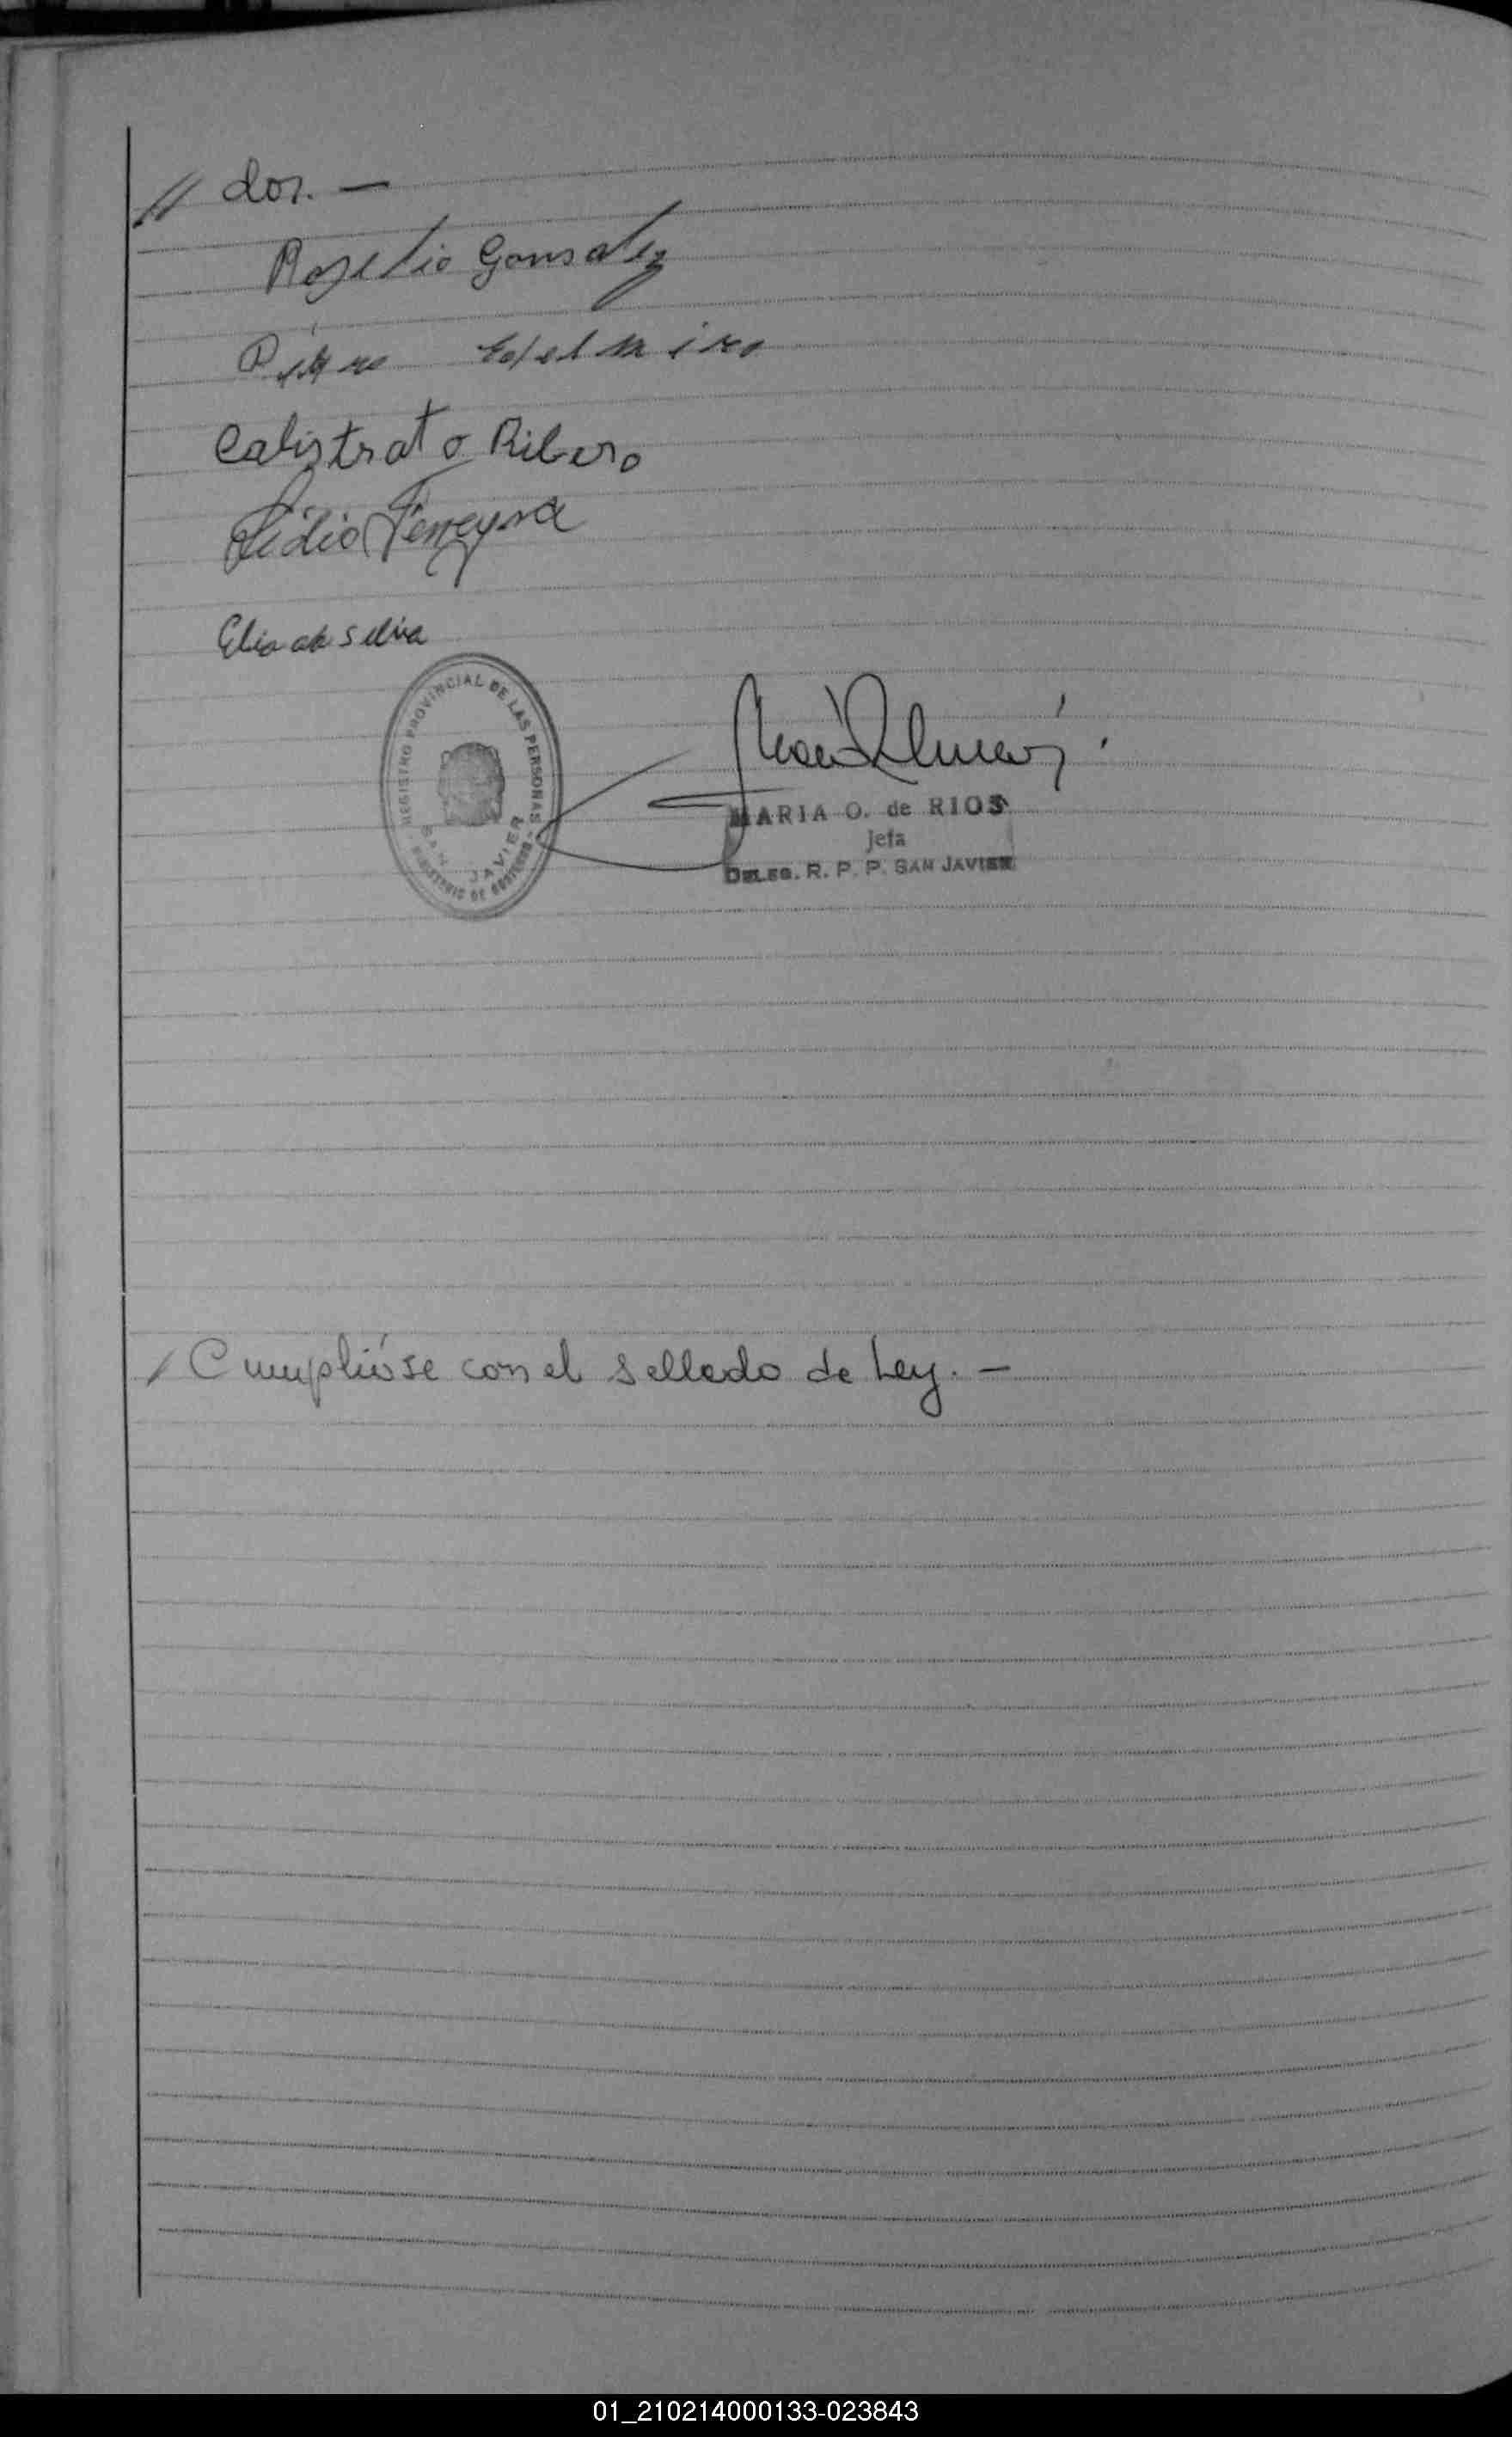 // dor. —
Rogelio Gonsalez
Edelmiro
Calistrato Ribero
Lidio Ferreyra
Elio de Silva
REGISTRO PROVINCIAL DE LAS PERSONAS
SAN JAVIER
MINISTERIO DE GOBIERNO
MARIA O. de RIOS
Jefa
DELEG. R. P. P. SAN JAVIER
/ Cumplióse con el sellado de Ley. —
01_210214000133-023843